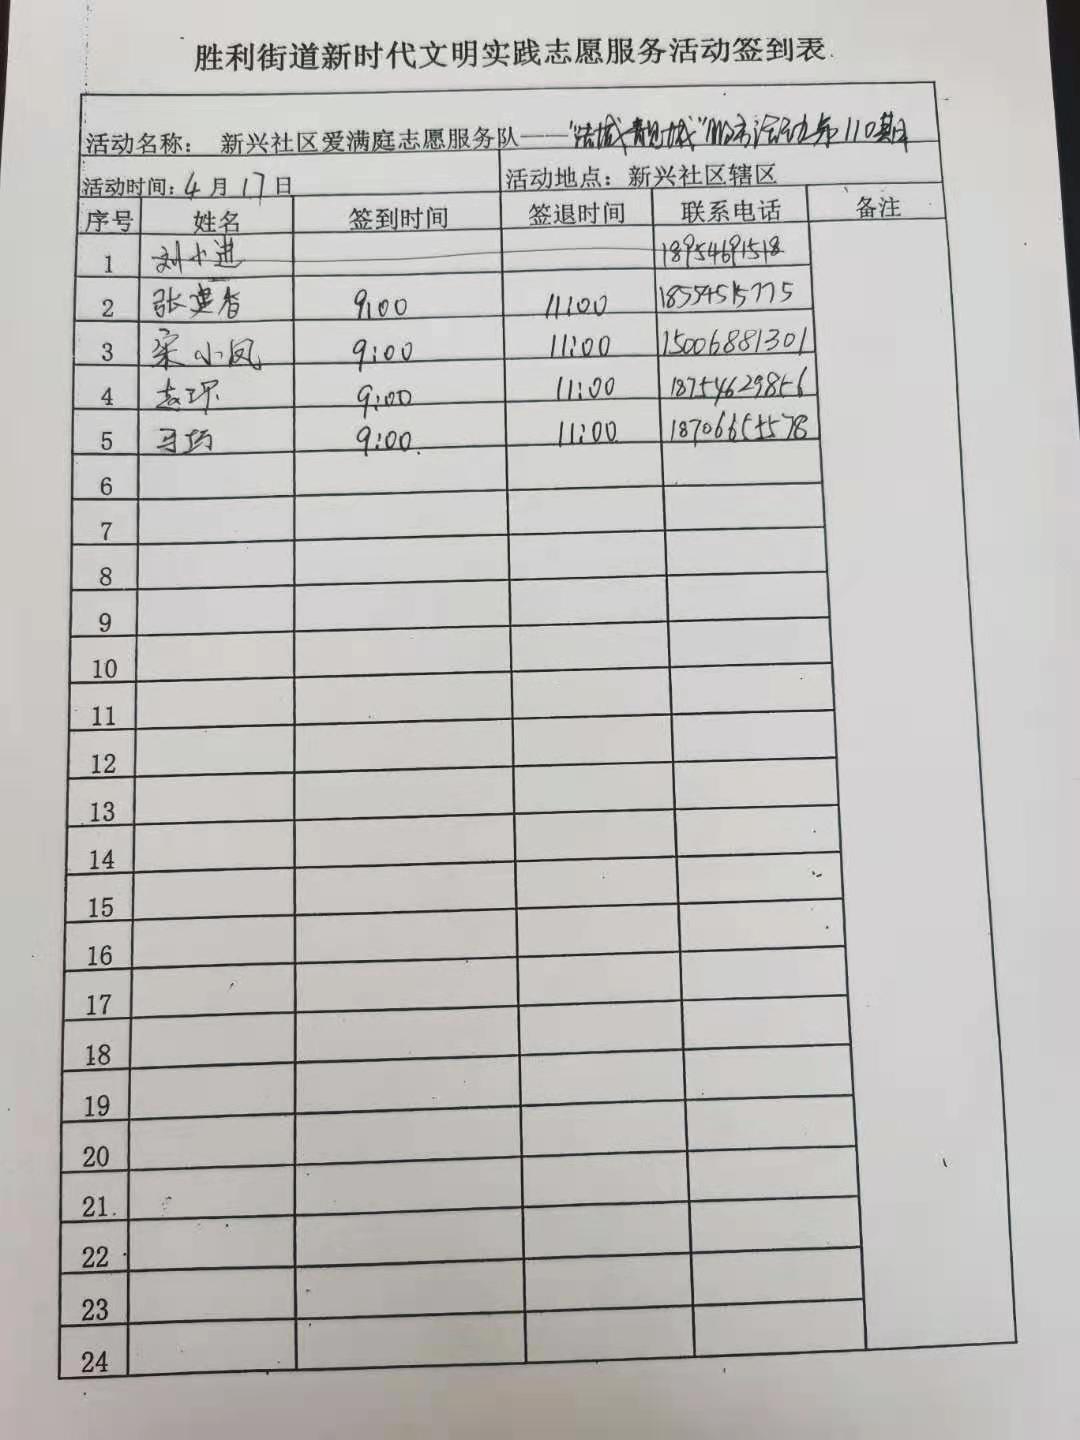 胜利街道新时代文明实践志愿服务活动签到表
活动名称： 新兴社区爱满庭志愿服务队——“洁城靓城” 活动第110期
活动时间：4月17日 活动地点：新兴社区辖区
序号 姓名 签到时间 签退时间 联系电话 备注
1 刘小进 18954691518
2 张建香 9:00 11:00 18554515775
3 宋小凤 9:00 11:00 15006881301
4 孟环 9:00 11:00 18754629856
5 马巧 9:00 11:00 18706655578
6
7
8
9
10
11
12
13
14
15
16
17
18
19
20
21
22
23
24